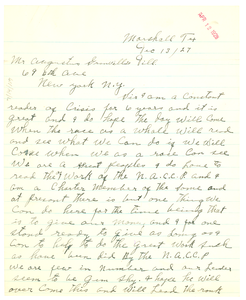 Marshall Tex
Dec 13/27
Mr Augustus Granville Dell
69 5th Ave
New York N.Y.
Sir I am a Constant
reader of Crisis for 6 years and it is
great and I do hope the day will Come
when the race as a whole will read
and see what We Can do if We Will
when we as a race Can see
We are a Great peoples I do home to
read the Work of the N.A.A.C.P. and I
am a Charter Member of the Same and
at present there is but one thing We
Can do here for the time being that
is to give our Money and I for one
stand ready to give as long as I
Can to help to do the Great Work Such
as have been did By the N.A.A.C.P.
We are few in Number and our leader
seem to be Gun Shy I hope he Will
over Come this and Will lead the rank